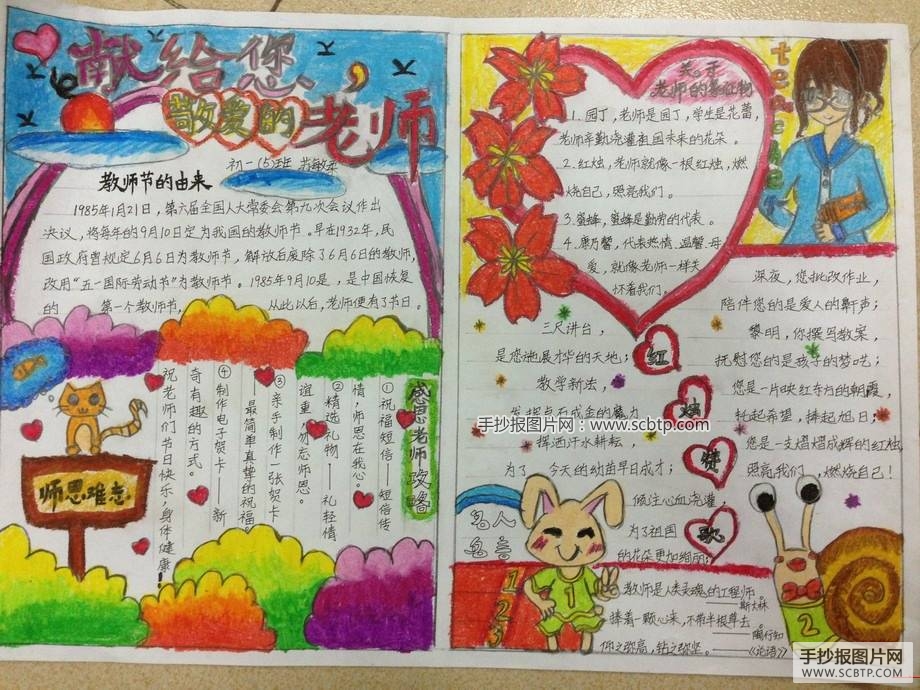 献给您、
敬爱的老师
初一(5)班
教师节的由来
1985年1月21日，第六届全国人大常委会第九次会议作出
决议，将每年的9月10日定为我国的教师节。早在1932年，民
国政府曾规定6月6日为教师节，解放后废除了6月6日的教师，
改用“五一国际劳动节”为教师节。1985年9月10是，是中国恢复
的 第一个教师节， 从此以后，老师便有了节日。
感恩老师攻略
①祝福短信——短信传
情，师恩在我心。
②精选礼物——礼轻情
谊重，勿忘师恩。
③亲手制作一张贺卡
——最简单真挚的祝福
④制作电子贺卡——新
奇有趣的方式。
祝老师们节日快乐、身体健康！
师恩难忘
关于
老师的象征物
1.园丁，老师是园丁，学生是花蕾，
老师辛勤浇灌祖国未来的花朵。
2.红烛，老师就像一根红烛，燃
烧自己，照亮我们。
3.蜜蜂，蜜蜂是勤劳的代表。
4.康乃馨，代表热情、温馨、母
爱，就像老师一样关
怀着我们。
teacher
红烛赞歌
三尺讲台，
是您施展才华的天地；
教学新法，
挥洒汗水耕耘，
为了 今天的幼苗早日成才；
倾注心血浇灌，
为了祖国
的花朵更加绚丽；
深夜，您批改作业，
陪伴您的是爱人的鼾声；
黎明，你撰写教案，
抚慰您的是孩子的梦呓；
您是一片映红东方的朝霞
托起希望，捧起旭日；
您是一支熠熠成辉的红烛，
照亮我们，燃烧自己！
名人
名言
1
2
3
教师是人类灵魂的工程师。
——斯大林
捧着一颗心来，不带半根草去。
——陶行知
仰之弥高，钻之弥坚。——《论语》
1
2
手抄报图片网：www.scbtp.com
手抄报图片网
WWW.SCBTP.COM